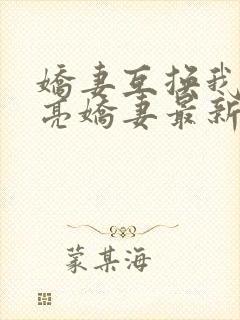 嬌妻互換我
亮嬌妻最新
蒙某海